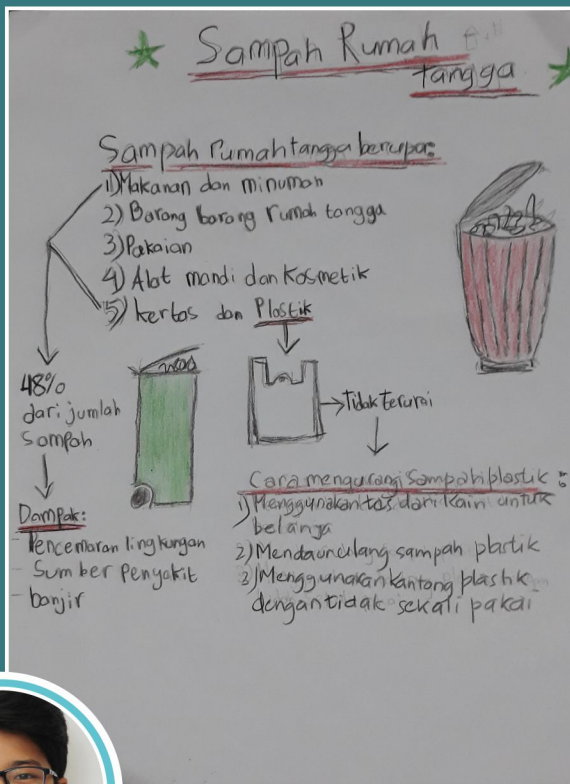 Sampah Rumah
tangga
Sampah Rumah tangga berupa:
1) Makanan dan minuman
2) Barang barang rumah tangga
3) Pakaian
4) Alat mandi dan Kosmetik
5) kertas dan Plastik
48%
dari jumlah
Sampah
Tidak terurai
Dampak:
- Pencemaran lingkungan
- Sumber Penyakit
- banjir
Cara mengurangi Sampah plastik :
1) Menggunakan tas dari Kain untuk
belanja
2) Mendaurulang sampah plastik
3) Menggunakan kantong plastik
dengan tidak sekali pakai